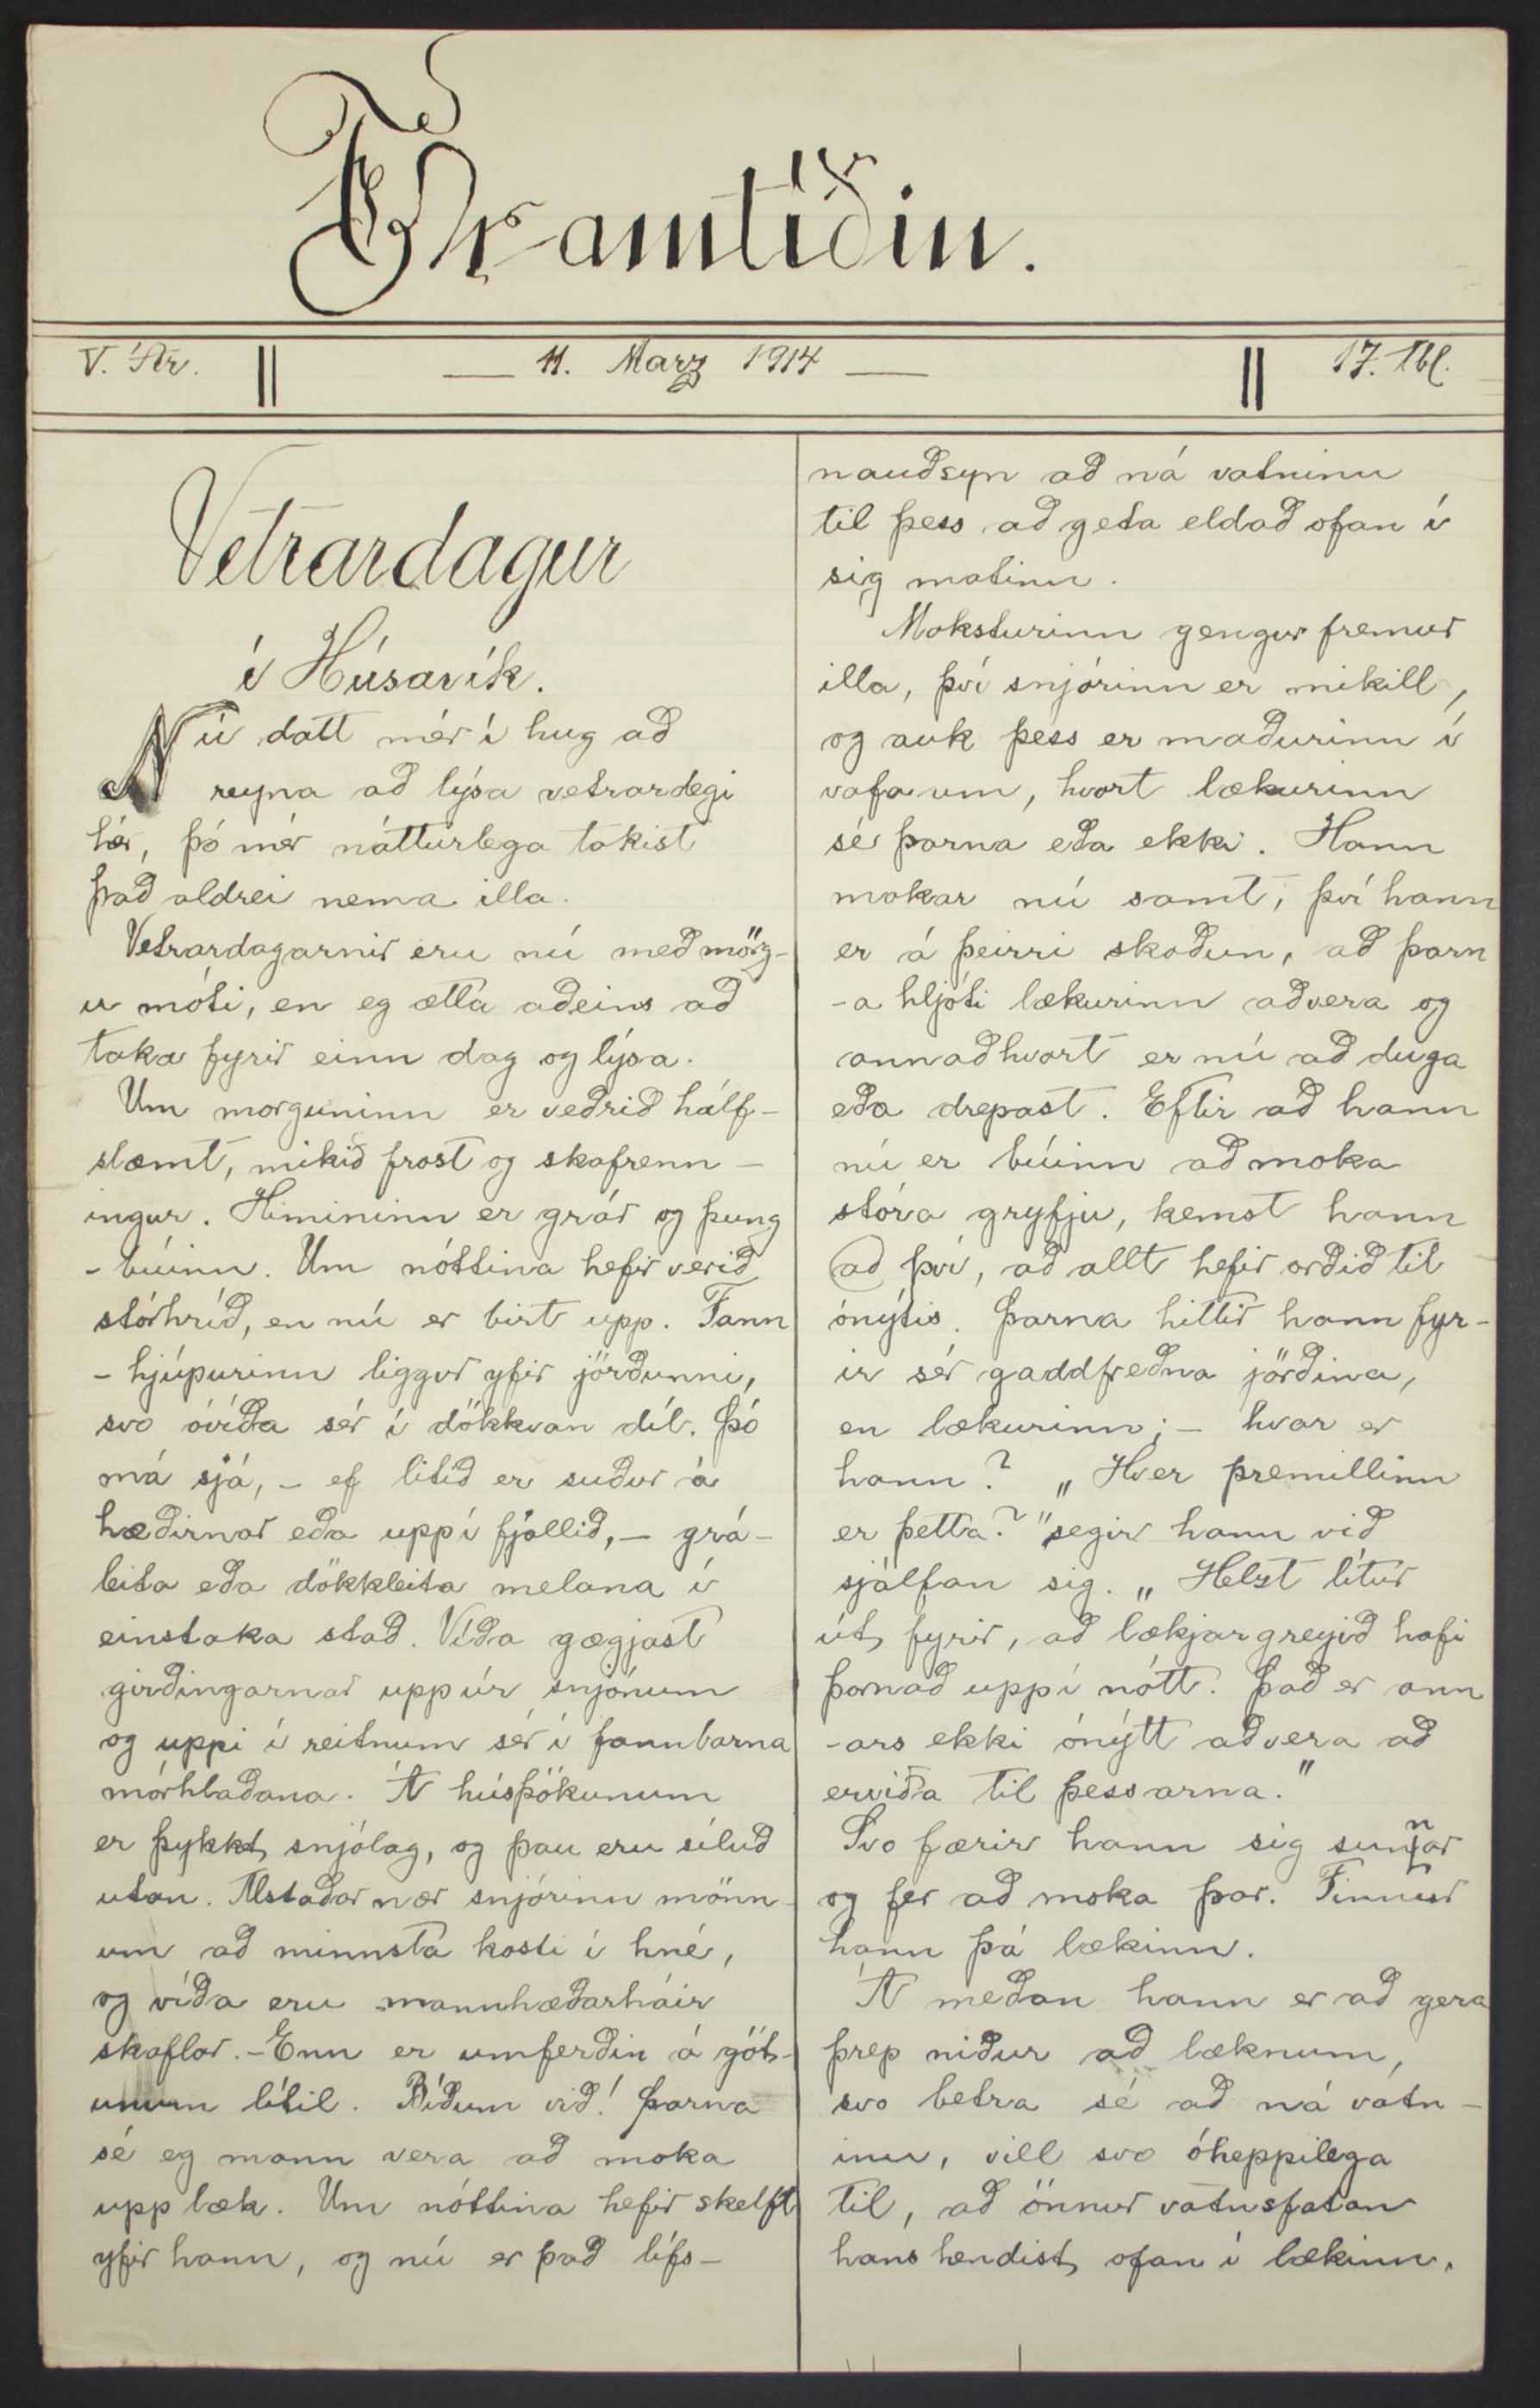 Framtíðin.
V. Ár.
11. Marz 1914
17. Tbl.
Vetrardagur
í Húsavík.
Nú datt mér í hug að
reyna að lýsa vetrardegi
hér, þó mér náttúrlega takist
það aldrei nema illa.
Vetrardagarnir eru nú með mörg-
u móti, en eg ætla aðeins að
taka fyrir einn dag og lýsa.
Um morguninn er veðrið hálf-
slæmt, mikið frost og skafrenn-
ingur. Himininn er grár og þung
-búinn. Um nóttina hefir verið
stórhríð, en nú er birt upp. Fann
-hjúpurinn liggur yfir jörðunni,
svo óvíða sér í dökkvan díl. Þó
má sjá, - ef litið er suður á
hæðirnar eða uppí fjallið, - grá-
leita eða dökkleita melana í
einstaka stað. Víða gægjast
girðingarnar uppúr snjónum
og uppi í reitnum sér í fannbarna
móhlaðana. Á húsþökunum
er þykkt snjólag, og þau eru síluð
utan. Alstaðar nær snjórinn mönn-
um að minnsta kosti í hné,
og víða eru mannhæðarháir
skaflar. - Enn er umferðin á göt-
unum lítil. Bíðum við! Þarna
sé eg mann vera að moka
upp læk. Um nóttina hefir skelft
yfir hann, og nú er það lífs-
nauðsyn að ná vatninu
til þess að geta eldað ofan í
sig matinn.
Moksturinn gengur fremur
illa, því snjórinn er mikill,
og auk þess er maðurinn í
vafa um, hvort lækurinn
sé þarna eða ekki. Hann
mokar nú samt, því hann
er á þeirri skoðun, að þarn
-a hljóti lækurinn að vera og
annaðhvort er nú að duga
eða drepast. Eftir að hann
nú er búinn að moka
stóra gryfju, kemst hann
að því, að allt hefir orðið til
ónýtis. Þarna hittir hann fyr-
ir sér gaddfreðna jörðina,
en lækurinn; - hvar er
hann? „Hver þremillinn
er þetta?" segir hann við
sjálfan sig. „Helzt lítur
út fyrir, að lækjargreyið hafi
þornað uppí nótt. Það er ann
-ars ekki ónýtt að vera að
erviða til þessarna."
Svo færir hann sig sunnar
og fer að moka þar. Finnur
hann þá lækinn.
Á meðan hann er að gera
þrep niður að læknum,
svo betra sé að ná vatn-
inu, vill svo óheppilega
til, að önnur vatnsfatan
hans hendist ofan í lækinn.